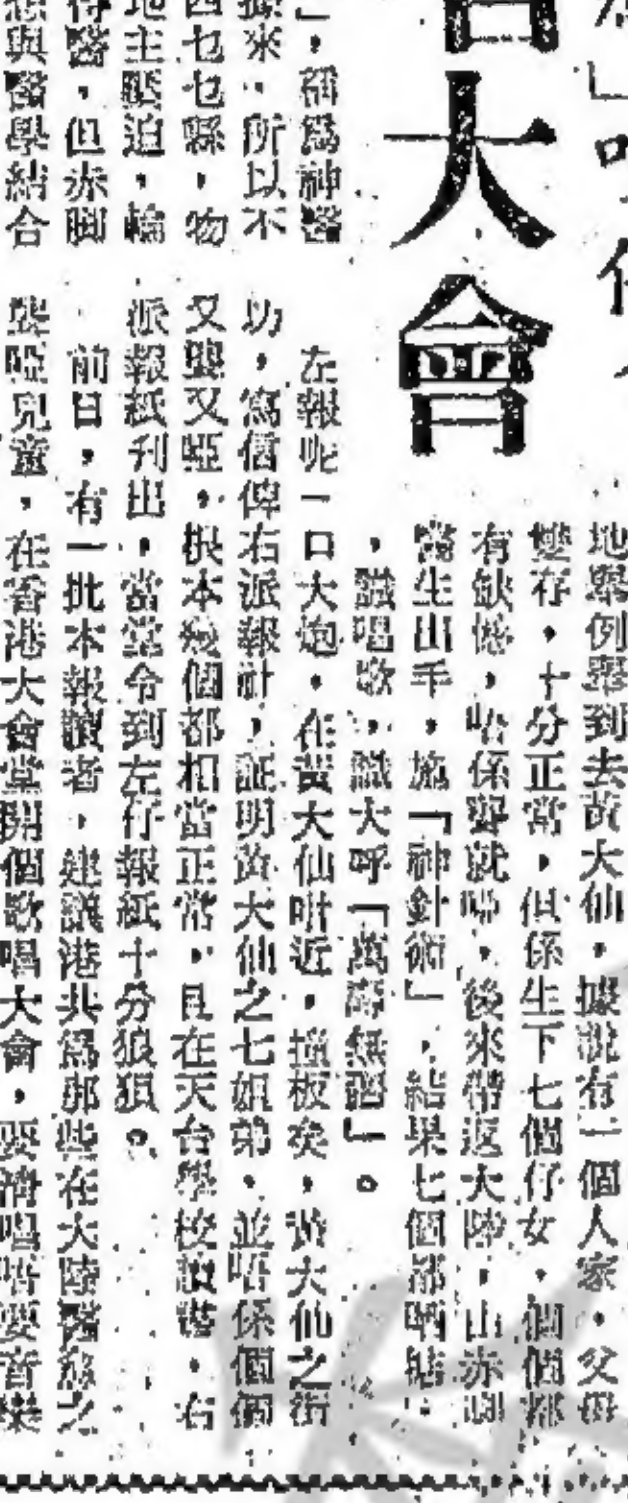 大會
地舉例舉到去黃大仙，據說有一個人家，父母
雙存，十分正常，但係生下七個仔女，個個都
有缺憾，唔係聾就啞，後來帶返大陸，由赤脚
醫生出手，施「神針術」，結果七個都晒
，識唱歌，識大呼「萬壽無疆」。
左報呢一口大炮，在黃大仙咁近，撞板矣，黃大仙之街
坊，寫信俾右派報社，証明黃大仙之七姐弟，並唔係個個
又聾又啞，根本幾個都相當正常，且在天台學校讀書，右
派報紙刊出，當堂令到左仔報紙十分狼狽。
前日，有一批本報讀者，建議港共爲那些在大陸醫愈之
聾啞兒童，在香港大會堂開個歌唱大會，要清唱唔要音樂
」，稱爲神醫
來，所以不
四乜乜縣，物
地主壓迫，輪
醫，但赤脚
與醫學結合